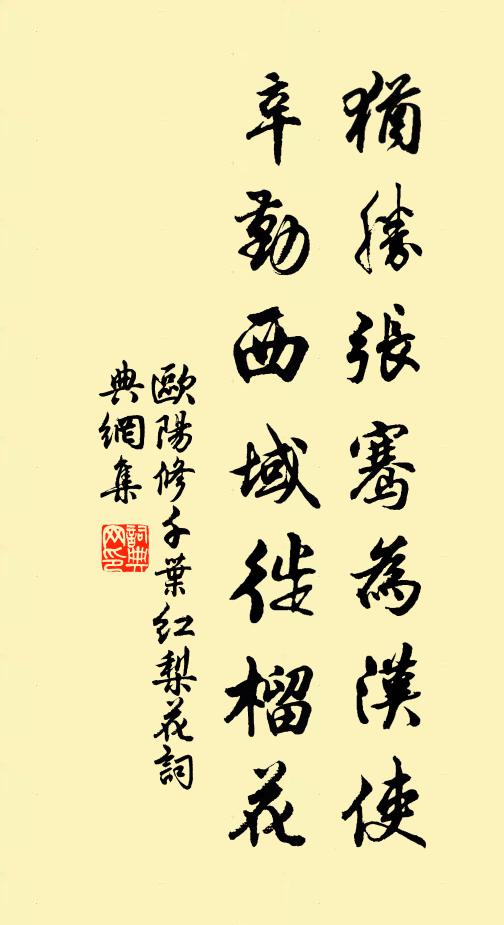 猶勝張騫為漢使
辛勤西域徙榴花
歐陽修千葉紅梨花詞
典網集
詞典網印